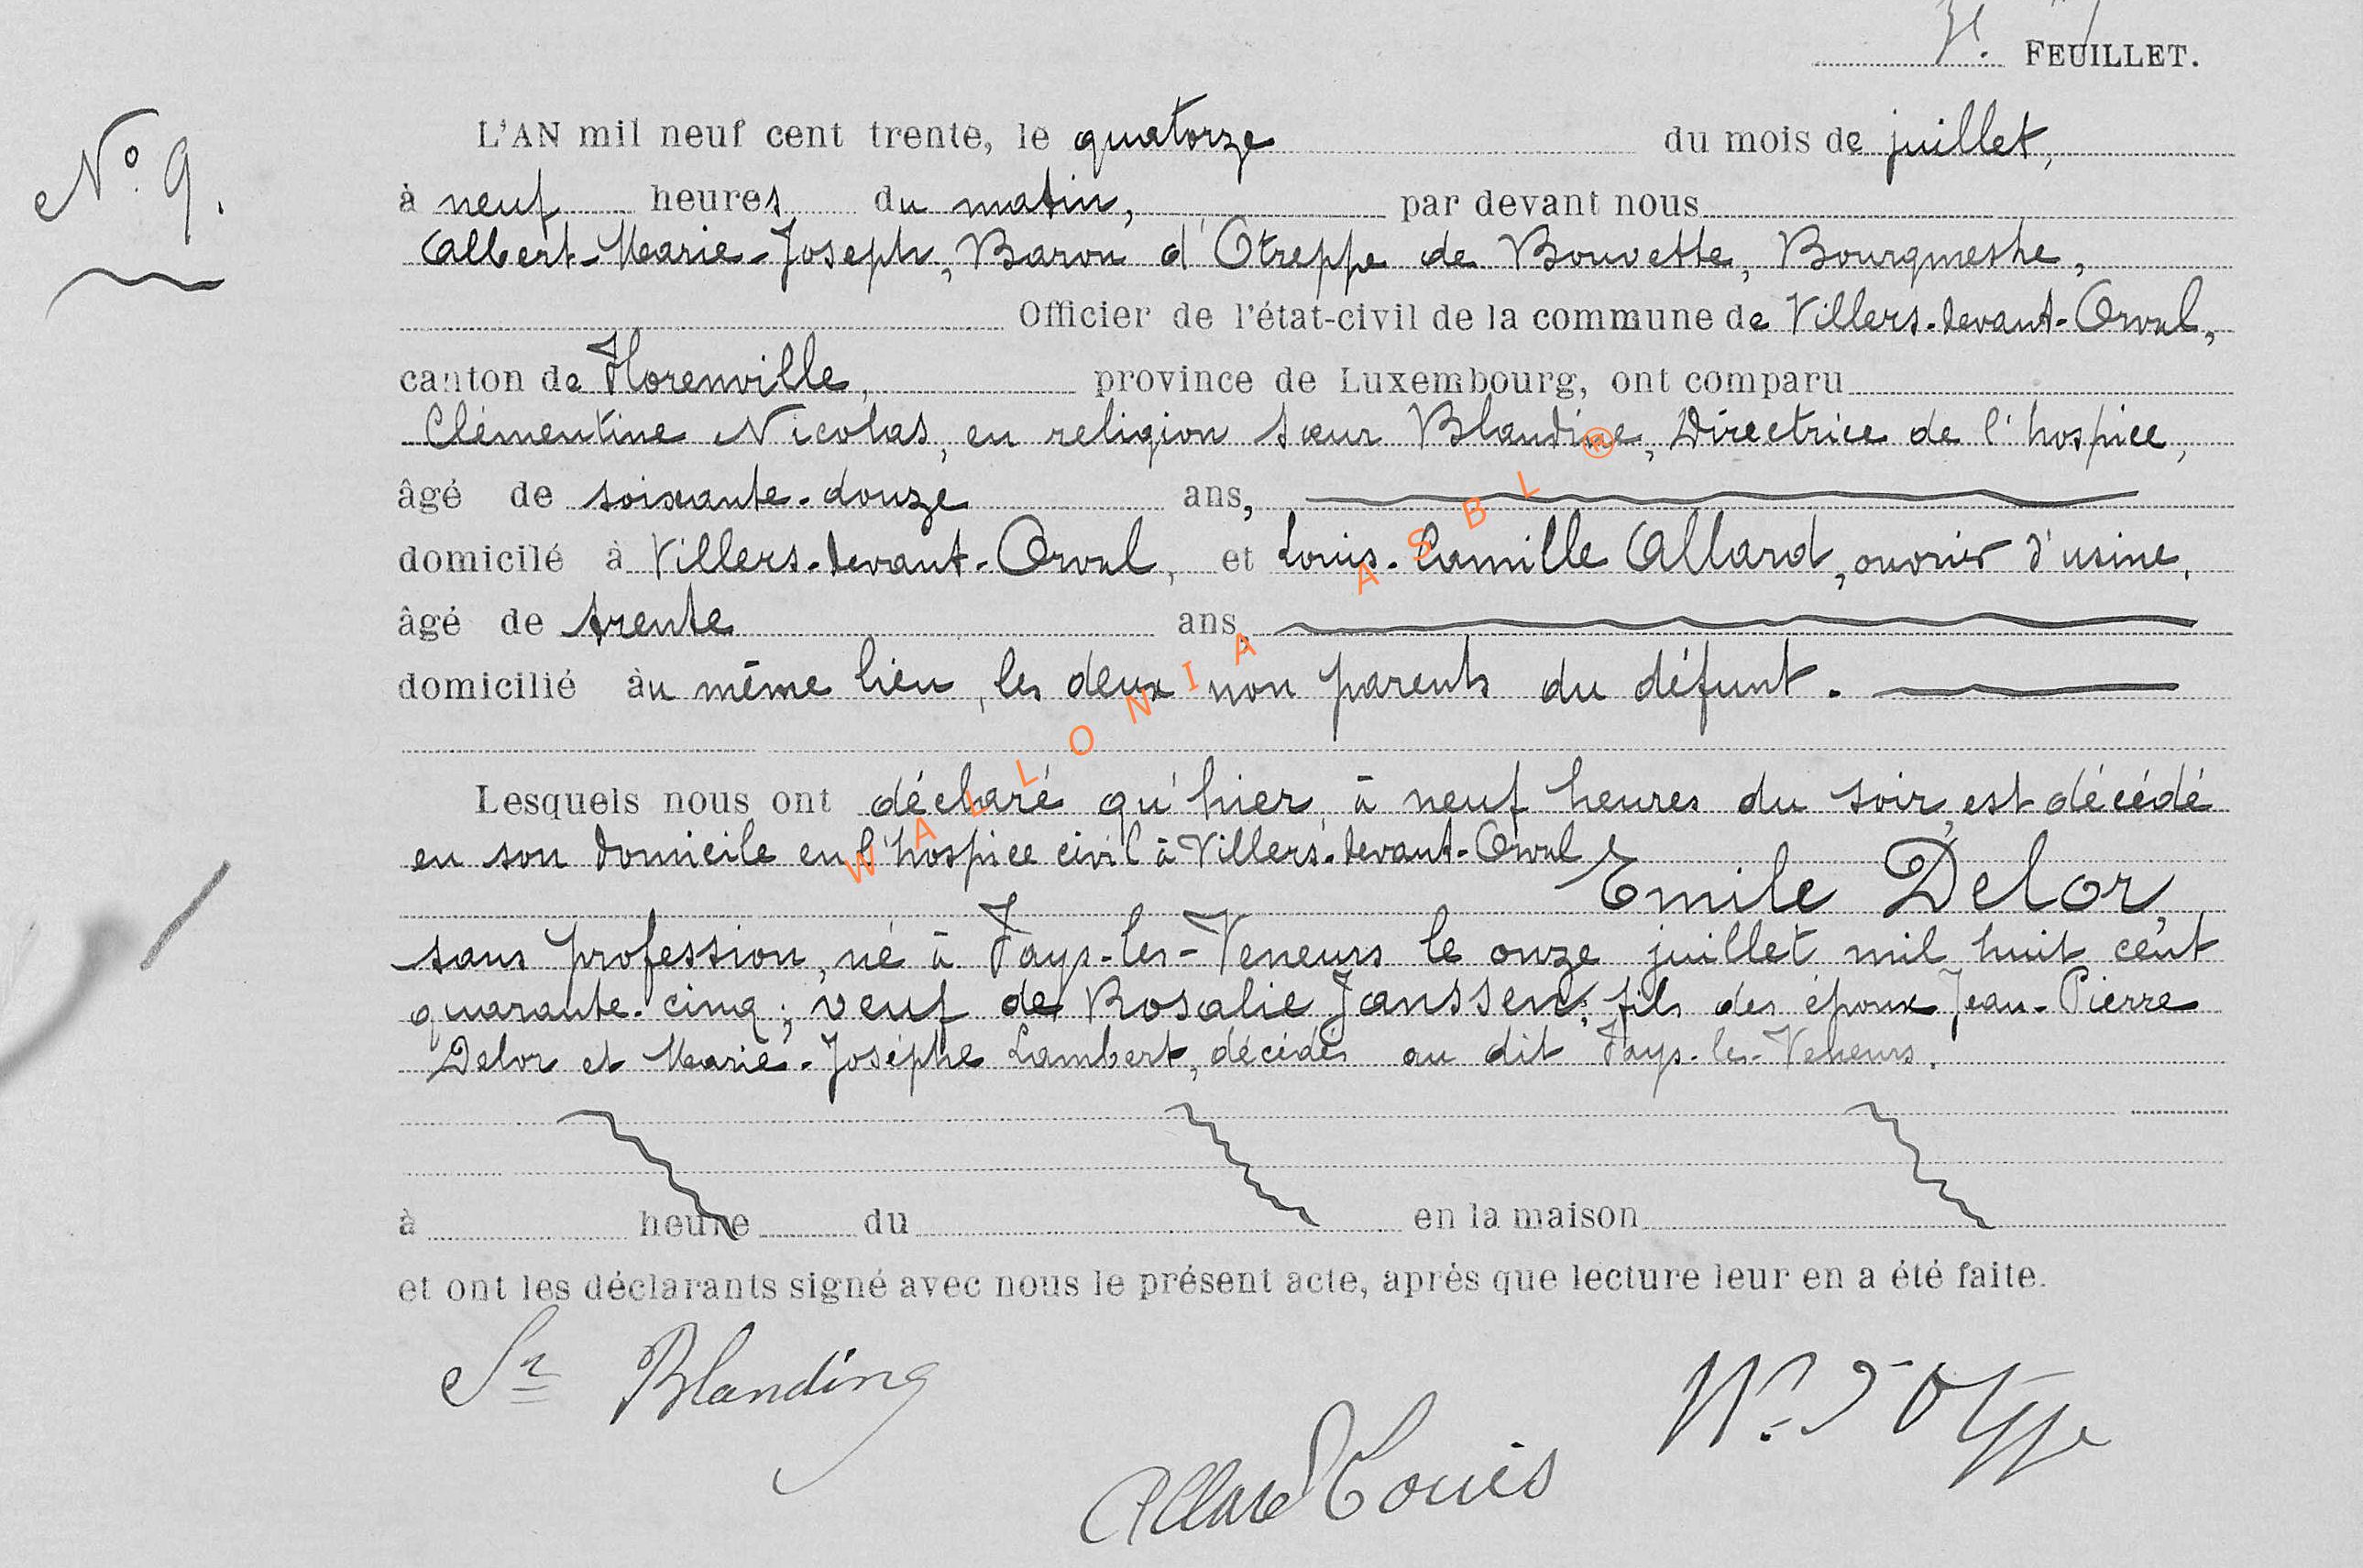 FEUILLET.
N° 9.
L'AN mil neuf cent trente, le quatorze du mois de juillet,
à neuf heures du matin, par devant nous
Albert-Marie-Joseph, Baron d'Otreppe de Bouvette, Bourgmestre,
Officier de l'état-civil de la commune de Villers-devant-Orval,
canton de Florenville, province de Luxembourg, ont comparu
Clémentine Nicolas, en religion sœur Blandine, Directrice de l'hospice,
âgé de soixante-douze ans,
domicilé à Villers-devant-Orval, et Louis-Camille Allard, ouvrier d'usine,
âgé de trente ans,
domicilié au même lieu, les deux non parents du défunt.
Lesquels nous ont déclaré qu'hier, à neuf heures du soir, est décédé
en son domicile en l'hospice civil à Villers-devant-Orval
Emile Delor,
sans profession, né à Fays-les-Veneurs le onze juillet mil huit cent
quarante-cinq; veuf de Rosalie Janssen; fils des époux Jean-Pierre
Delor et Marie-Josèphe Lambert, décédés au dit Fays-les-Veneurs.
à heure du en la maison
et ont les déclarants signé avec nous le présent acte, après que lecture leur en a été faite.
Sr Blandine
Allard Louis
d'Otreppe
WALLONIA ASBL ®